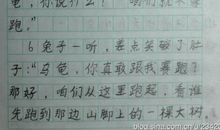 龟，你说什么？咱们就来赛
跑。”
6 兔子一听，差点笑破了肚
子：“乌龟，你真敢跟我赛跑？
那好，咱们从这里跑起，看谁
先跑到那边山脚上的一棵大树。
blog.sina.com.cn/u/2362